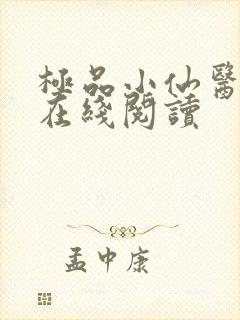 極品小仙醫
在綫閱讀
孟中康